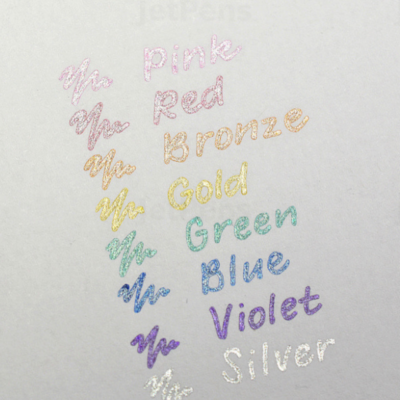 JetPens
Pink
Red
Bronze
Gold
Green
Blue
Violet
Silver